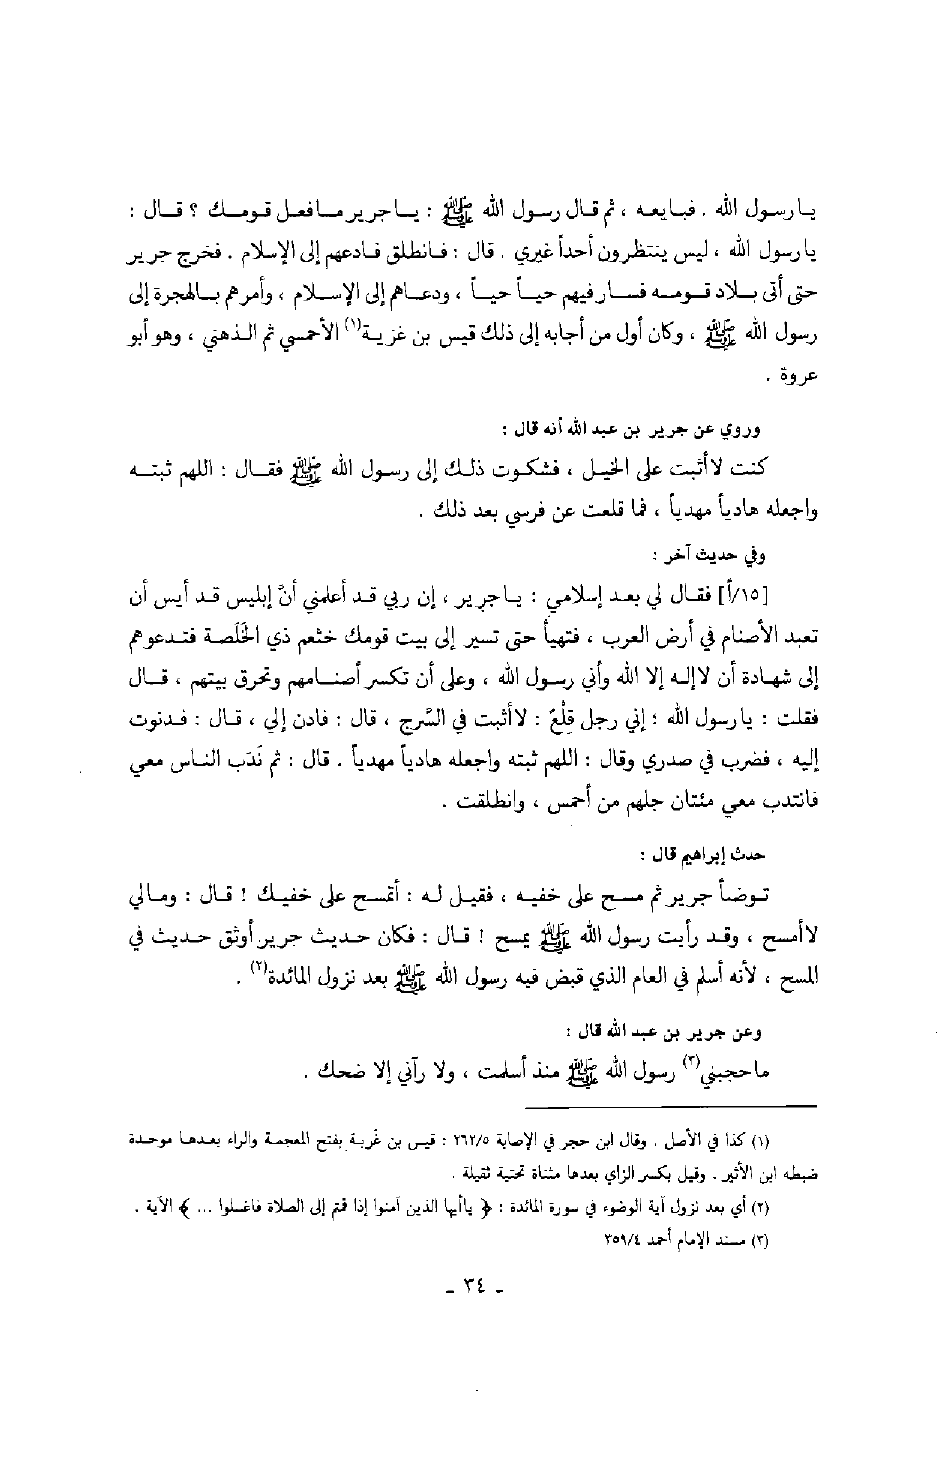 يا رسول الله . فبايعه ، ثم قال رسول الله ﷺ : يا جرير ما فعل قومك ؟ قال :
يا رسول الله ، ليس ينتظرون أحداً غيري . قال : فانطلق فادعهم إلى الإسلام . فخرج جرير
حتى أتى بلاد قومه فسار فيهم حياً حياً ، ودعاهم إلى الإسلام ، وأمرهم بالهجرة إلى
رسول الله ﷺ ، وكان أول من أجابه إلى ذلك قيس بن غزية(١) الأحمسي ثم الذهني ، وهو أبو
عروة .
وروي عن جرير بن عبد الله أنه قال :
كنت لا أثبت على الخيل ، فشكوت ذلك إلى رسول الله ﷺ فقال : اللهم ثبته
واجعله هادياً مهدياً ، فما قلعت عن فرسي بعد ذلك .
وفي حديث آخر :
[١٥/أ] فقال لي بعد إسلامي : يا جرير ، إن ربي قد أعلمني أنّ إبليس قد أيس أن
تعبد الأصنام في أرض العرب ، فتهيأ حتى تسير إلى بيت قومك خثعم ذي الخَلَصة فتدعوهم
إلى شهادة أن لا إله إلا الله وأني رسول الله ، وعلى أن تكسر أصنامهم وتحرق بيتهم ، قال
فقلت : يا رسول الله ؛ إني رجل قِلْعٌ : لا أثبت في السَّرج ، قال : فادن إلي ، قال : فدنوت
إليه ، فضرب في صدري وقال : اللهم ثبته واجعله هادياً مهدياً . قال : ثم نَدَب الناس معي
فانتدب معي مئتان جلهم من أحمس ، وانطلقت .
حدث إبراهيم قال :
توضأ جرير ثم مسح على خفيه ، فقيل له : أتمسح على خفيك ! قال : وما لي
لا أمسح ، وقد رأيت رسول الله ﷺ يمسح ! قال : فكان حديث جرير أوثق حديث في
المسح ، لأنه أسلم في العام الذي قبض فيه رسول الله ﷺ بعد نزول المائدة(٢) .
وعن جرير بن عبد الله قال :
ما حجبني(٣) رسول الله ﷺ منذ أسلمت ، ولا رآني إلا ضحك .
(١) كذا في الأصل . وقال ابن حجر في الإصابة ٢٦٢/٥ : قيس بن غَرَبة بفتح المعجمة والراء بعدها موحدة
ضبطه ابن الأثير . وقيل بكسر الزاي بعدها مثناة تحتية ثقيلة .
(٢) أي بعد نزول آية الوضوء في سورة المائدة : ﴿ يا أيها الذين آمنوا إذا قمتم إلى الصلاة فاغسلوا ... ﴾ الآية .
(٣) مسند الإمام أحمد ٣٥٩/٤
- ٣٤ -